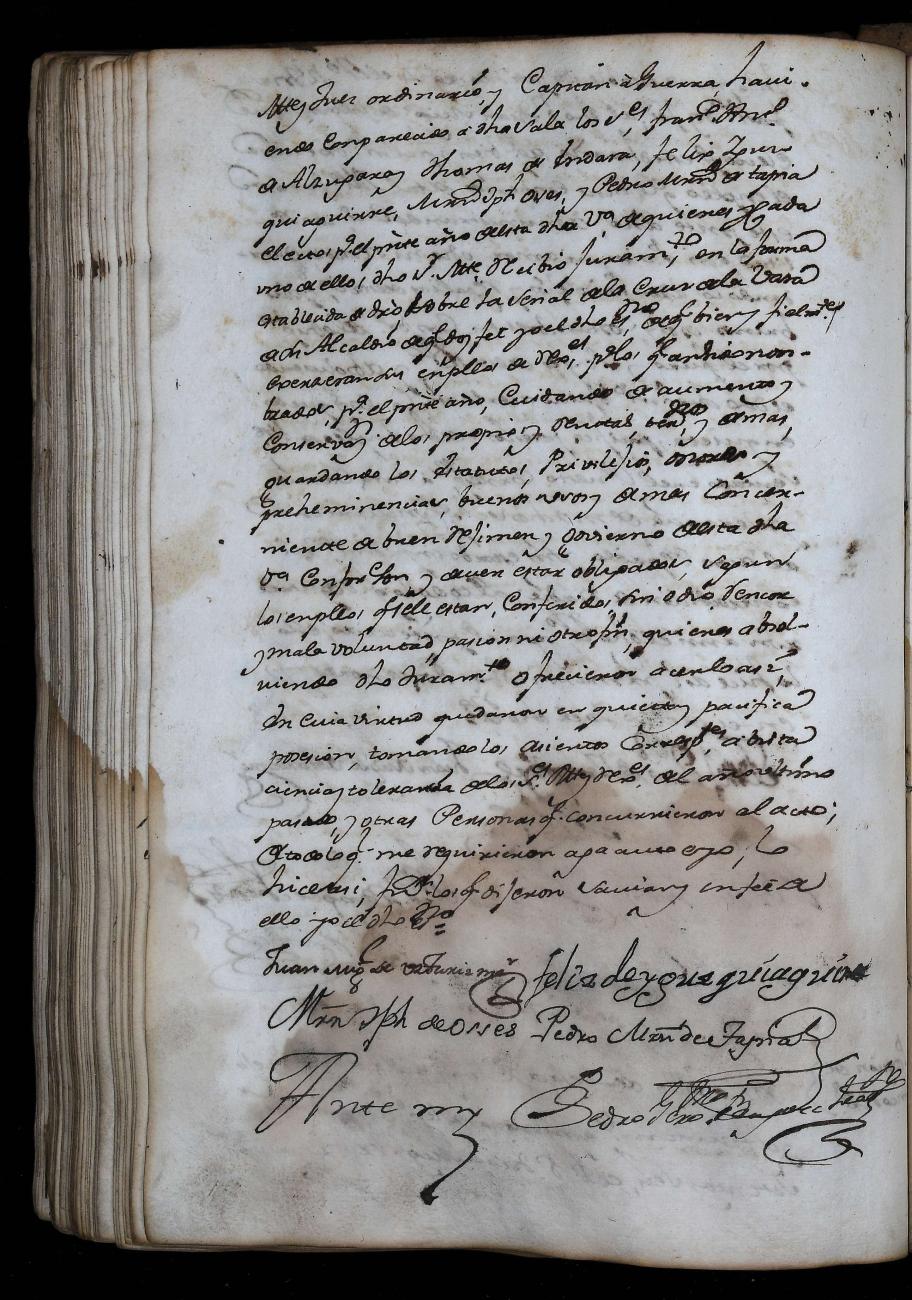 Attey Juez ordinario, y Capitan à Guerra, havi-
endo Conparecido a dha sala los s.es fran.co
de Alzugaray Thomas de Indara, felix Ypu-
quiaguirre, Mrn Jph oses, y Pedro Mrn de tapia
electos p.a el pñte año de esta dha V.a de quienes y cada
uno de ellos, dho s.r Atte Recibio Juram.to, en la forma
establecida de dro sobre la señal de la Cruz de la Vara
de dho Alcaldio de q.e doy fee yo el dho ess.no de q.e bien y fielm.te
exerzeran sus enpleos de p.r los q.e an sido nom-
brados, p.a el pñte año, Cuidando de aumento y
Conserv.on de los propios y Rentas, y demas,
guardando los estatutos, Privilejios, onores y
preheminencias, buenos usos y demas Concer-
niente a buen Rejimen y Govierno de esta dha
V.a y deven estar obligados, segun
los enpleos q.e se le estan Conferidos, sin odio Rencor
y mala voluntad, pasion ni otro fin, quienes absol-
viendo dho Juram.to ofrecieron acerlo asi,
En cuia virtud quedaron en quieta y pacifica
posesion, tomando los asientos Corresp.tes, a vista
ciencia y tolerancia de los s.es Atte y Rex.es del año ultimo
pasado, y otras Personas q.e concurrieron al acto;
de todo lo q.e me Requirieron aga auto e yo, lo
hice asi, los q.e dijeron savian y en fee de
ello yo el dho Ess.no =
Juan
felix de yguzquiaguirre
Mrn Jph de Osses Pedro Mrn de Tapia
Ante my Pedro